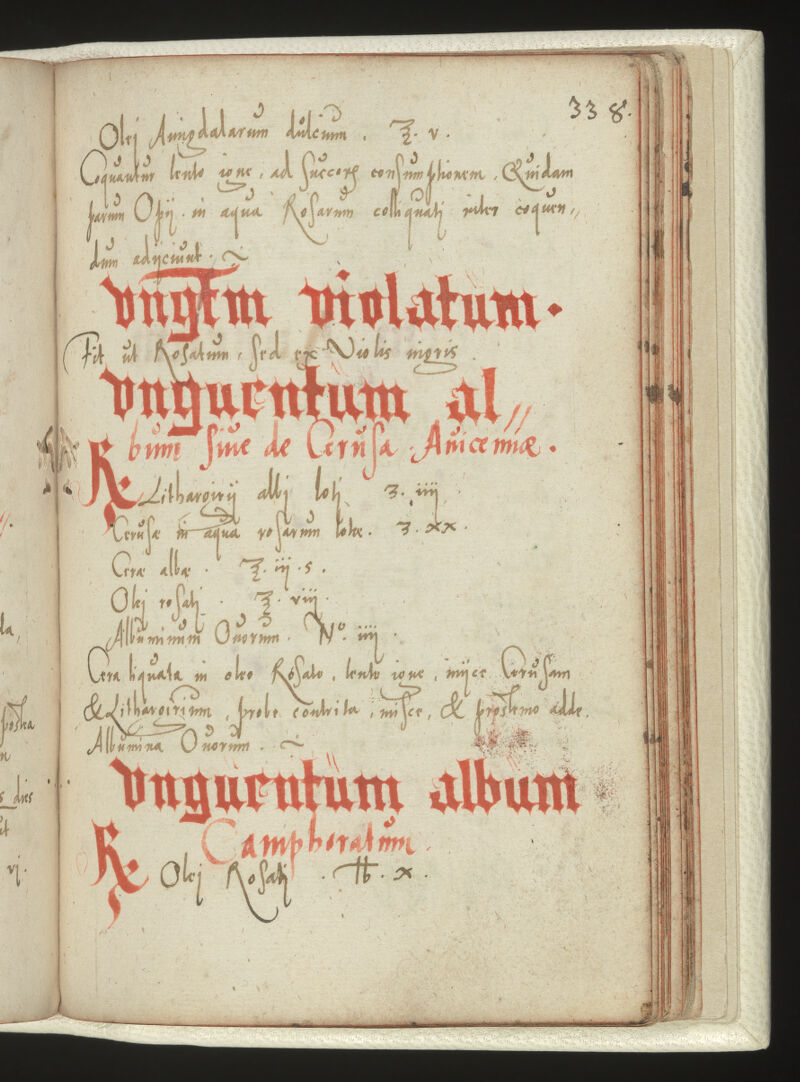 338.
Olej Amigdalarum dulcium . ℥. v.
Coquantur lento igne, ad succorū consumptionem. Quidam
parum Opij in aqua Rosarum colliquati inter coquen〃
dum adijciunt.
Vngt̄m violatum.
Fit ut Rosatum, sed ex Violis nigris.
Vnguentum al〃
bum siue de Cerusa Auicennæ.
℞ Lithargirij albj lotj ʒ. iiij
Cerusæ in aqua rosarum lotæ. ʒ. xx.
Ceræ albæ . ℥. iij. s.
Olej rosatj . ℥. viij.
Albuminum Ouorum. Nº. iiij.
Cera liquata in oleo Rosato, lento igne, inijce Cerusam
& Lithargirium, probe contrita, misce, & postremo adde.
Albumina Ouorum.
Vnguentum album
Camphoratum.
℞ Olej Rosatj . ℔. x.
postea
s dies
ut
vj.